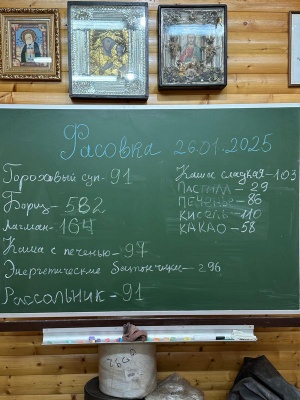 Фасовка 26.01.2025
Гороховый суп-91
Борщ-582
Лагман-164
Каша с печенью-97
Энергетические батончики-296
Рассольник-91
Каша сладкая-103
ПАСТИЛА-29
ПЕЧЕНЬЕ-86
КИСЕЛЬ-110
КАКАО-58